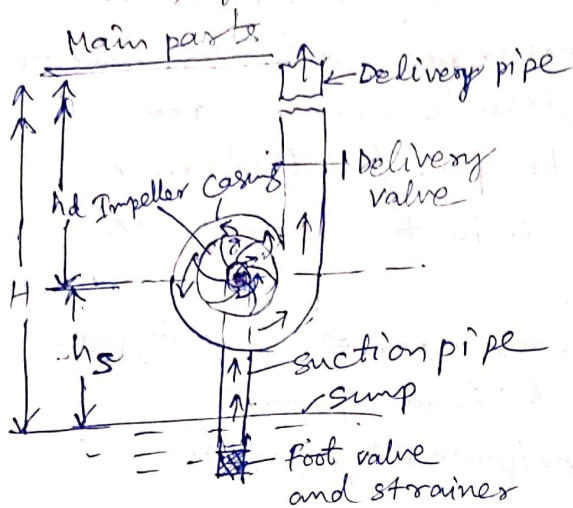 Main parts
Delivery pipe
Delivery
valve
hd Impeller Casing
H
hs
suction pipe
sump
foot valve
and strainer